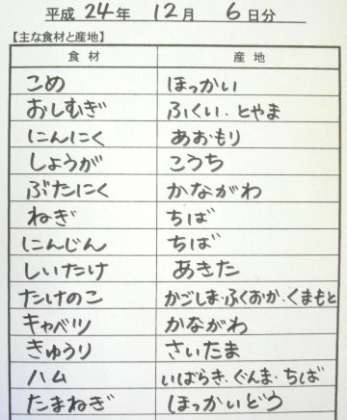 平成 24年 12月 6日分
【主な食材と産地】
食材 産地
こめ ほっかい
おしむぎ ふくい・とやま
にんにく あおもり
しょうが こうち
ぶたにく かながわ
ねぎ ちば
にんじん ちば
しいたけ あきた
たけのこ かごしま・ふくおか・くまもと
キャベツ かながわ
きゅうり さいたま
ハム いばらき・ぐんま・ちば
たまねぎ ほっかいどう